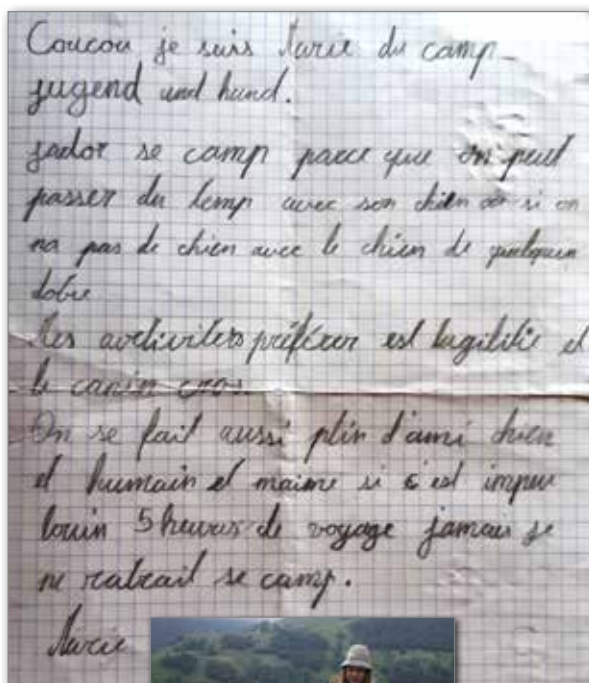 Coucou je suis Marie du camp
jugend und hund.
jador se camp parce que on peut
passer du temp avec son chien ou si on
na pas de chien avec le chien de quelquun
dotre
Mes avctiviters préférer est lagilitie et
le canin cros.
On se fait aussi plin d'ami chien
et humain et maime si c'est impeu
louin 5 heures de voyage jamais je
ne ratrait se camp.
Marie